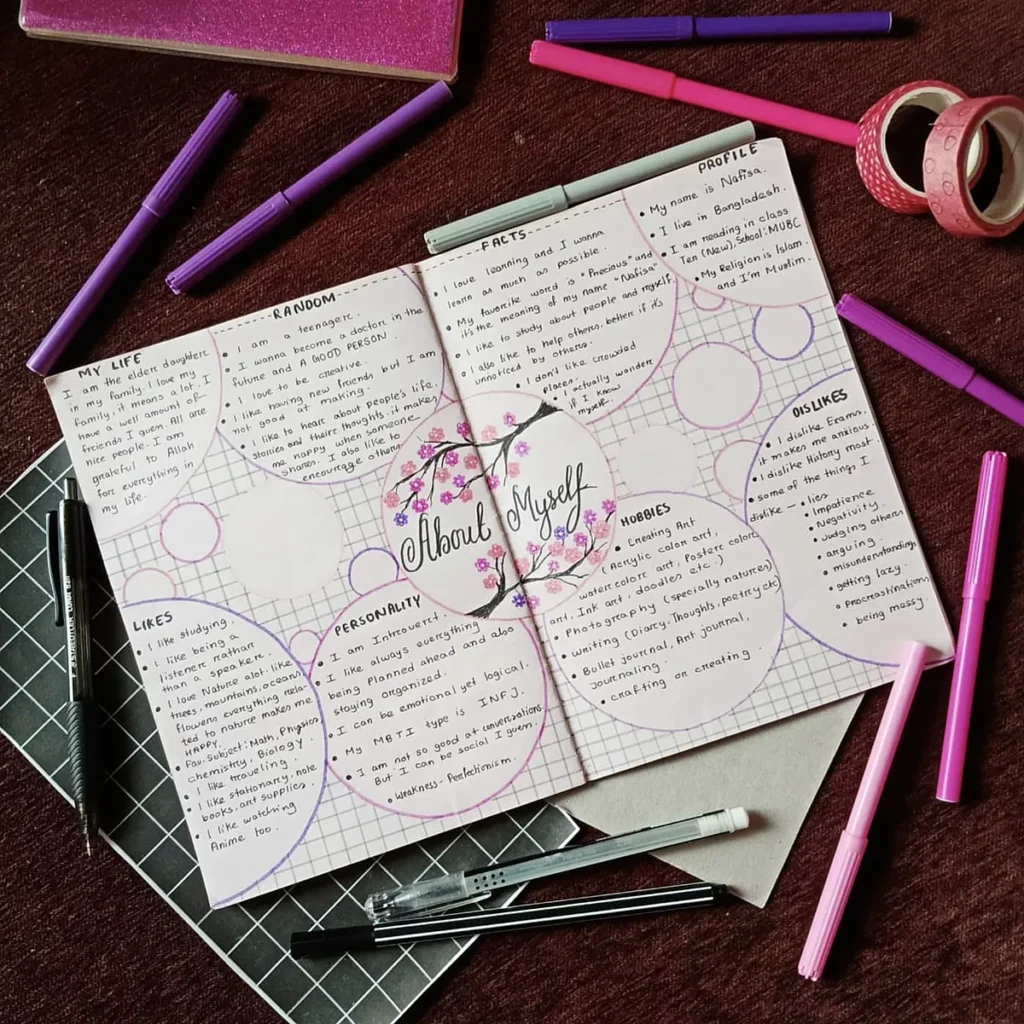 MY LIFE
I am the elder daughter
in my family. I love my
family, it means a lot. I
have a well amount of
friends I guess. All are
nice people. I am
grateful to Allah
for everything in
my life.
RANDOM
• I am a teenager.
• I wanna become a doctor in the
future and A GOOD PERSON.
• I love to be creative.
• I like having new friends but I am
not good at making.
• I like to hear about people's life,
stories and their thoughts, it makes
me happy when someone
shares. I also like to
encourage others.
FACTS
• I love learning and I wanna
learn as much as possible.
• My favorite word is "Precious" and
it's the meaning of my name "Nafisa"
• I like to study about people and myself.
• I also like to help others, better if it's
unnoticed by others.
• I don't like crowded
places.
• I actually wonder
if I know
myself.
PROFILE
• My name is Nafisa.
• I live in Bangladesh.
• I am reading in class
Ten (New), School: MUBC
• My Religion is Islam
and I'm Muslim.
About Myself
DISLIKES
• I dislike Exams.
it makes me anxious
• I dislike History most.
• some of the things I
dislike — • lies
• Impatience
• Negativity.
• Judging others
• arguing.
• misunderstandings
• getting lazy.
• Procrastinations
• being messy.
LIKES
• I like studying.
• I like being a
listener rather
than a speaker.
• I love Nature alot, like
trees, mountains, oceans
flowers, everything rela-
ted to nature makes me
HAPPY.
• Fav. Subject: Math, Physics
chemistry, Biology.
• I like traveling.
• I like stationary, note
books, art supplies.
• I like watching
Anime too.
PERSONALITY
• I am Introvert.
• I like always everything
being planned ahead and also
staying organized.
• I can be emotional yet logical.
My MBTI type is INFJ.
• I am not so good at conversations.
But I can be social I guess.
• Weakness - Perfectionism.
HOBBIES
• Creating Art
(Acrylic color art,
water color art, Poster color
art, Ink art, doodles etc.)
• Photography (specially natures)
• Writing (Diary, Thoughts, poetry etc)
• Bullet journal, Art journal,
Journaling.
• crafting or creating.
STAEDTLER